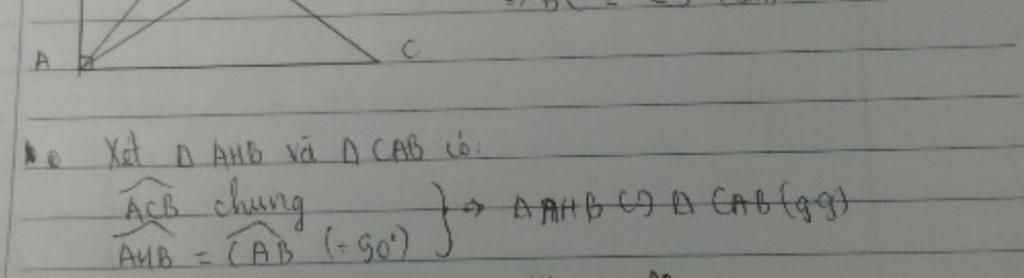 A
C
Xét Δ AHB và Δ CAB có:
ACB chung
AHB = CAB (=90°) } → Δ AHB ∽ Δ CAB (gg)